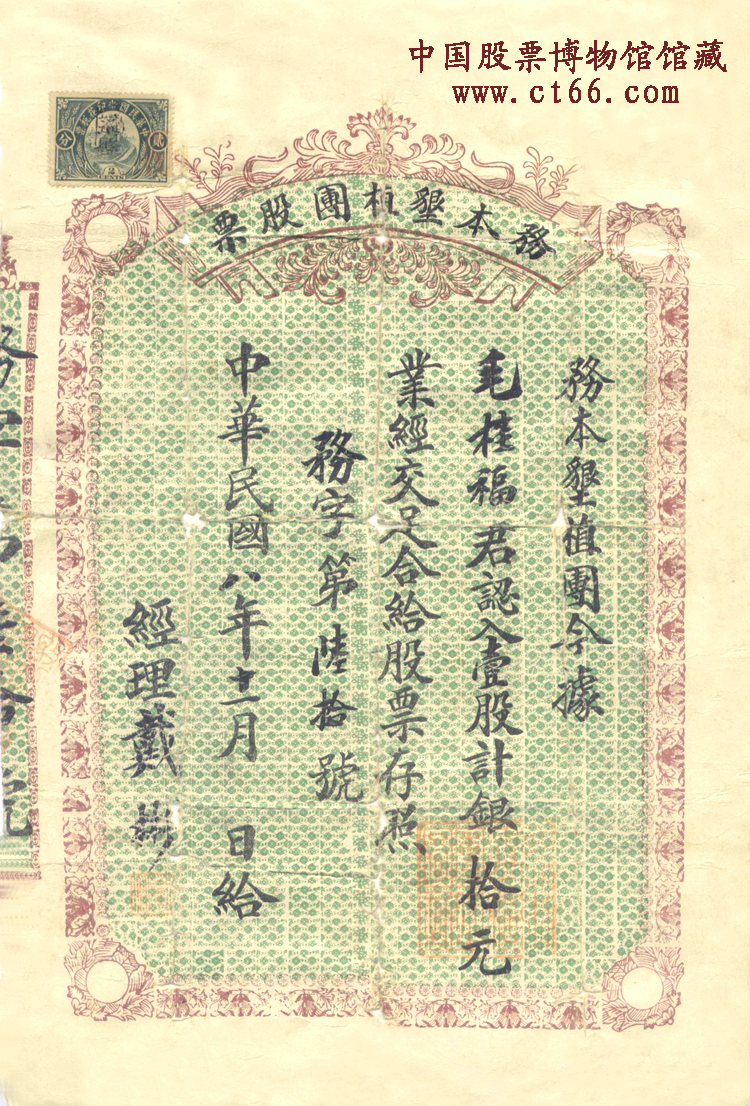 中国股票博物馆馆藏
www.ct66.com
貳
分
2
CENTS
務本墾植團股票
務本墾植團今據
毛桂福君認入壹股計銀拾元
業經交足合給股票存照
務字第陸拾號
中華民國八年十二月 日給
經理戴彬